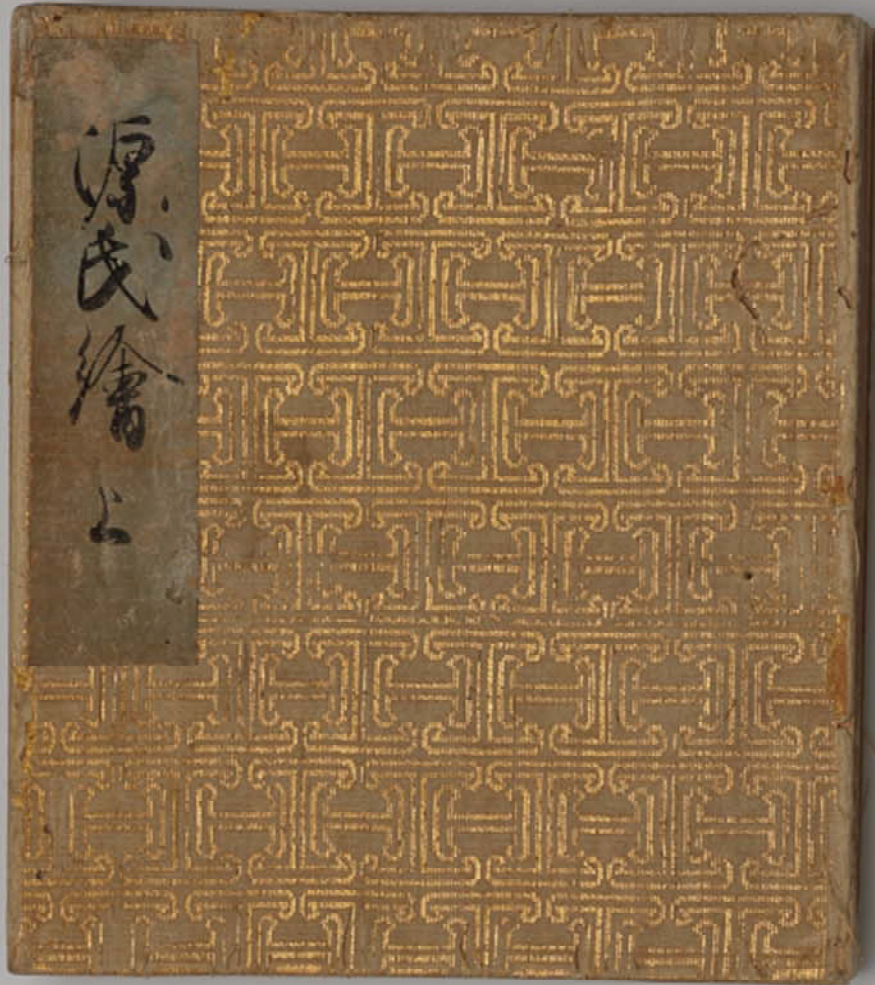 源氏繪 上